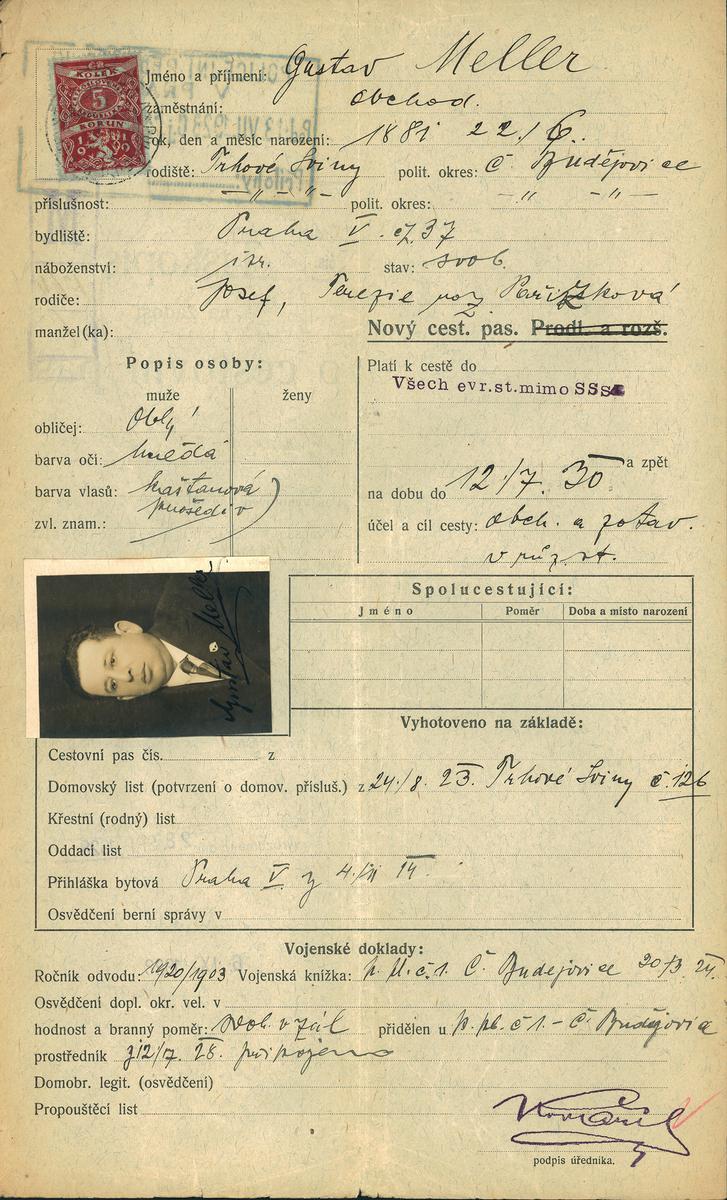 KOLEK
5
KORUN
Jméno a příjmení: Gustav Meller
zaměstnání: obchod.
rok, den a měsíc narození: 1881 22./6.
rodiště: Trhové Sviny polit. okres: Č Budějovice
příslušnost: — " — " — polit. okres: — " — — " —
bydliště: Praha V. čj 37
náboženství: isr. stav: svob.
rodiče: Josef, Terezie roz. Pařízková
manžel(ka):
Nový cest. pas. Prodl. a rozš.
Popis osoby:
muže ženy
obličej: Oblý
barva očí: hnědá
barva vlasů: kaštanová
prošediv
zvl. znam.:
Platí k cestě do
Všech evr.st.mimo SSS
na dobu do 12./7. 30 a zpět
účel a cíl cesty: obch. a zotav.
v růz. st.
Gustav Meller
Spolucestující:
Jméno Poměr Doba a místo narození
Vyhotoveno na základě:
Cestovní pas čís. z
Domovský list (potvrzení o domov. přísluš.) z 24./8. 23. Trhové Sviny č. 126
Křestní (rodný) list
Oddací list
Přihláška bytová Praha V z
Osvědčení berní správy v
Vojenské doklady:
Ročník odvodu: 1920/1903 Vojenská knížka: č. 1. Č. Budějovice 20/3 24.
Osvědčení dopl. okr. vel. v
hodnost a branný poměr: voj. v zál přidělen u p. pl. č 1 – Č. Budějovice
prostředník z 12/7. 28. připojeno
Domobr. legit. (osvědčení)
Propouštěcí list
podpis úředníka.